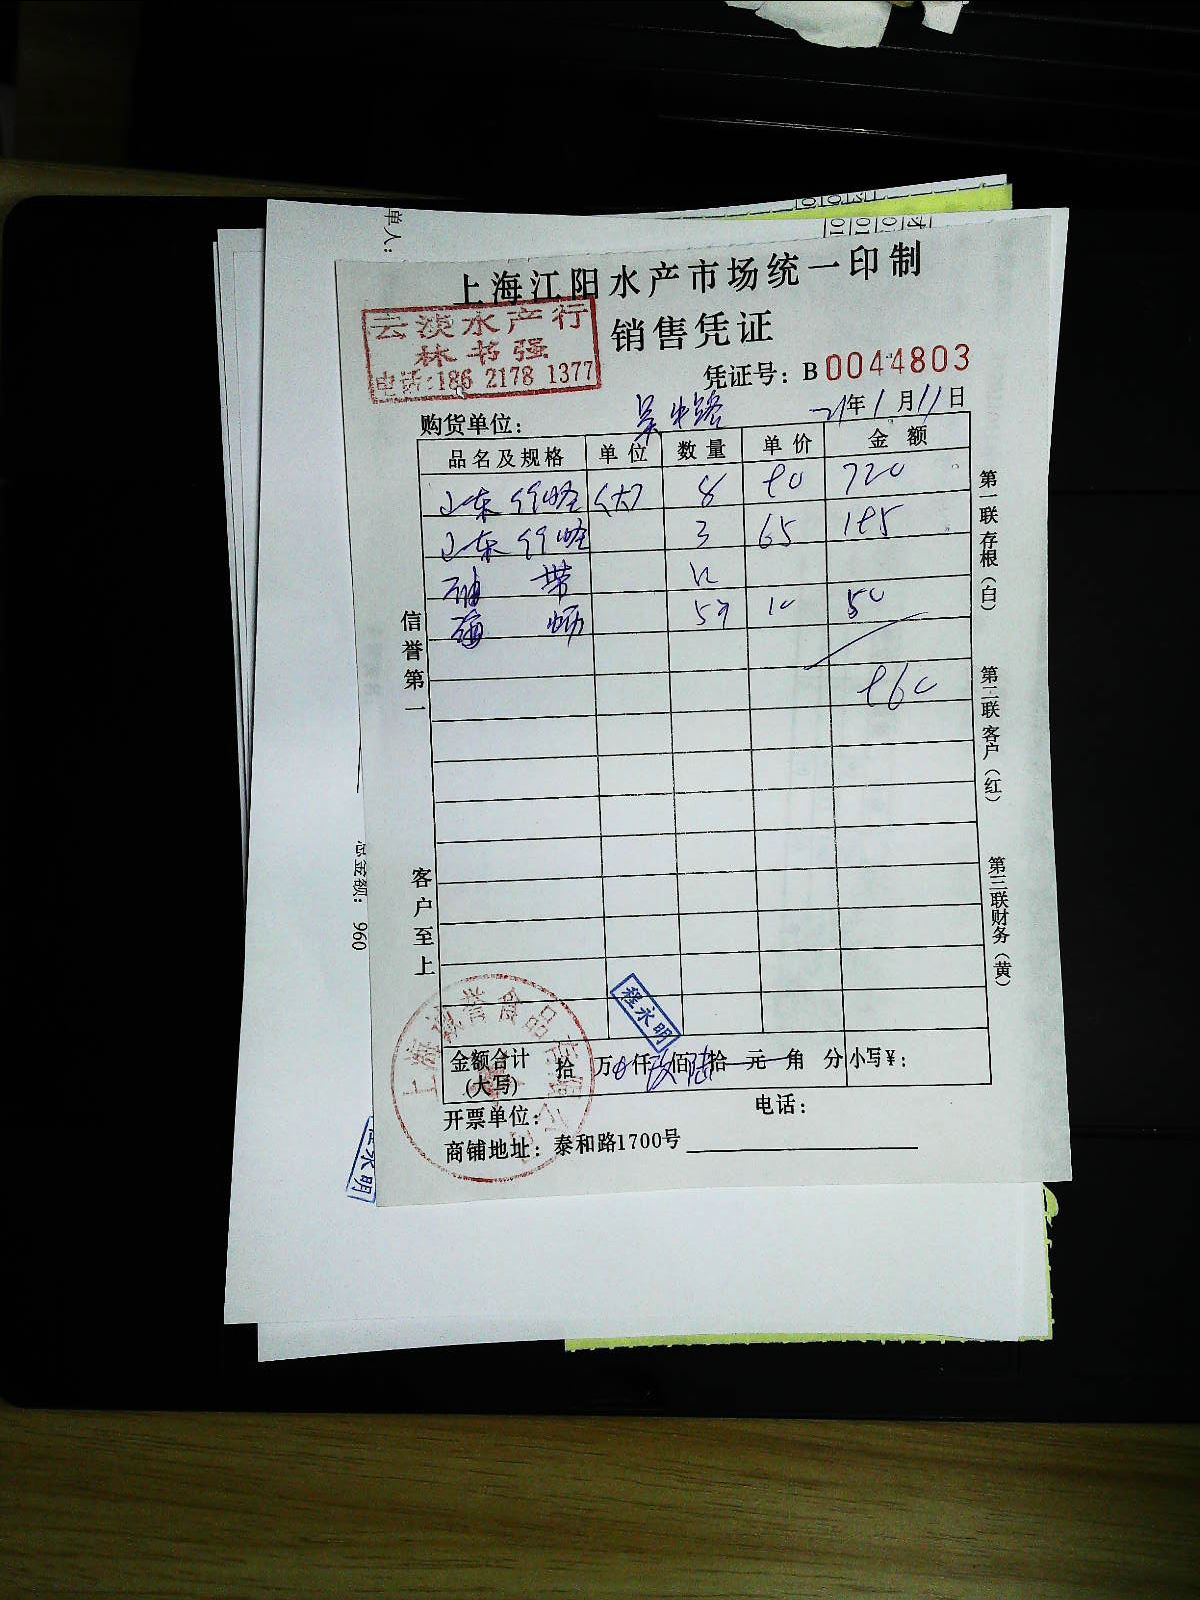 单人：
上海江阳水产市场统一印制
云淡水产行
林书强
电话:186 2178 1377
销售凭证
凭证号：B0044803
购货单位： 吴中路 21年1月11日
品名及规格 单位 数量 单价 金额
山东 (大) 8 90 720
山东 3 65 195
带
海蛎 10 50
960
信誉第一
客户至上
第一联存根（白）
第二联客户（红）
第三联财务（黄）
总金额： 960
程永明
金额合计(大写) 拾 万 仟 玖 佰 陆 拾 元 角 分 小写¥：
开票单位： 电话：
商铺地址：泰和路1700号
程永明